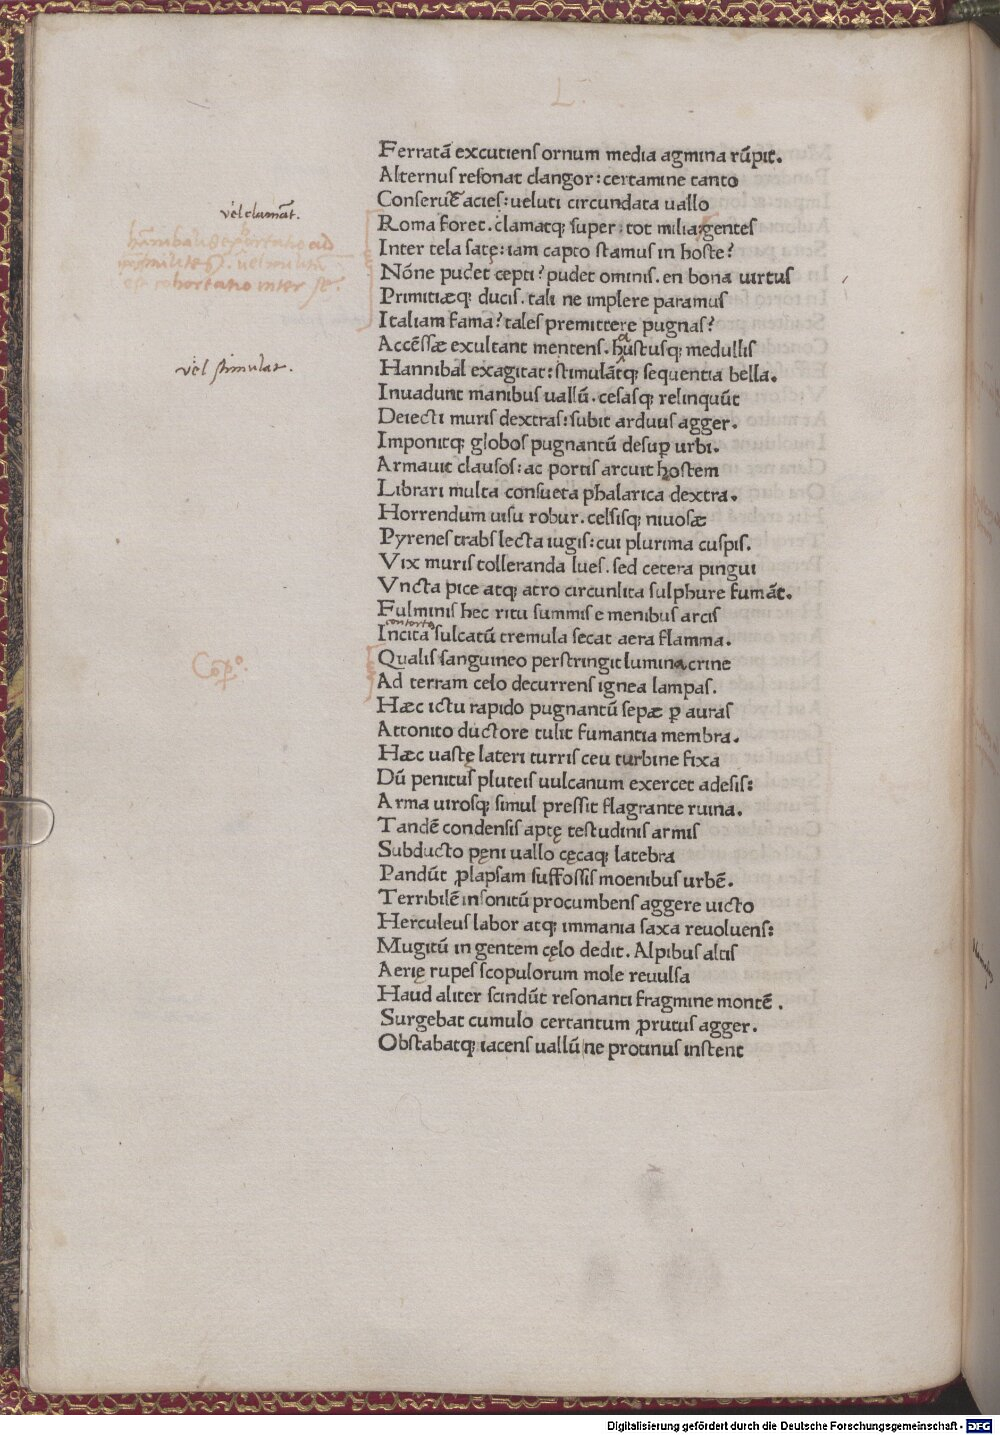 L.
Ferratã excutiens ornum media agmina rũpit.
Alternus resonat clangor: certamine tanto
Conseruẽt acies: ueluti circundata uallo
vel clamãt.
Roma foret. clamatq; super: tot milia gentes
Inter tela satę: iam capto stamus in hoste?
Nõne pudet cepti? pudet ominis. en bona uirtus
Primitiæq; ducis. tali ne implere paramus
Italiam fama? tales premittere pugnas?
Accẽssæ exultant mentens. haustusq; medullis
vel stimulat.
Hannibal exagitat: stimulãtq; sequentia bella.
Inuadunt manibus uallũ. cesasq; relinquũt
Deiecti muris dextras: subit arduus agger.
Imponitq; globos pugnantũ desuꝑ urbi.
Armauit clausos: ac portis arcuit hostem
Librari multa consueta phalarica dextra.
Horrendum uisu robur. celsisq; niuosæ
Pyrenes trabs lecta iugis: cui plurima cuspis.
Vix muris tolleranda lues. sed cetera pingui
Vncta pice atq; atro circunlita sulphure fumãt.
Fulminis hec ritu summis e menibus arcis
contorta
Incita sulcatũ tremula secat aera flamma.
Coꝑº.
Qualis sanguineo perstringit lumina crine
Ad terram celo decurrens ignea lampas.
Hæc ictu rapido pugnantũ sepæ ꝑ auras
Attonito ductore tulit fumantia membra.
Hæc uastę lateri turris ceu turbine fixa
Dũ penitus pluteis uulcanum exercet adesis:
Arma uirosq; simul pressit flagrante ruina.
Tandẽ condensis aptę testudinis armis
Subducto pęni uallo cęcaq; latebra
Pandũt ꝓlapsam suffossis moenibus urbẽ.
Terribilẽ insonitũ procumbens aggere uicto
Herculeus labor atq; immania saxa reuoluens:
Mugitũ in gentem cęlo dedit. Alpibus altis
Aerię rupes scopulorum mole reuulsa
Haud aliter scindũt resonanti fragmine montẽ.
Surgebat cumulo certantum ꝓrutus agger.
Obstabatq; iacens uallũ ne protinus instent
Digitalisierung gefördert durch die Deutsche Forschungsgemeinschaft - DFG